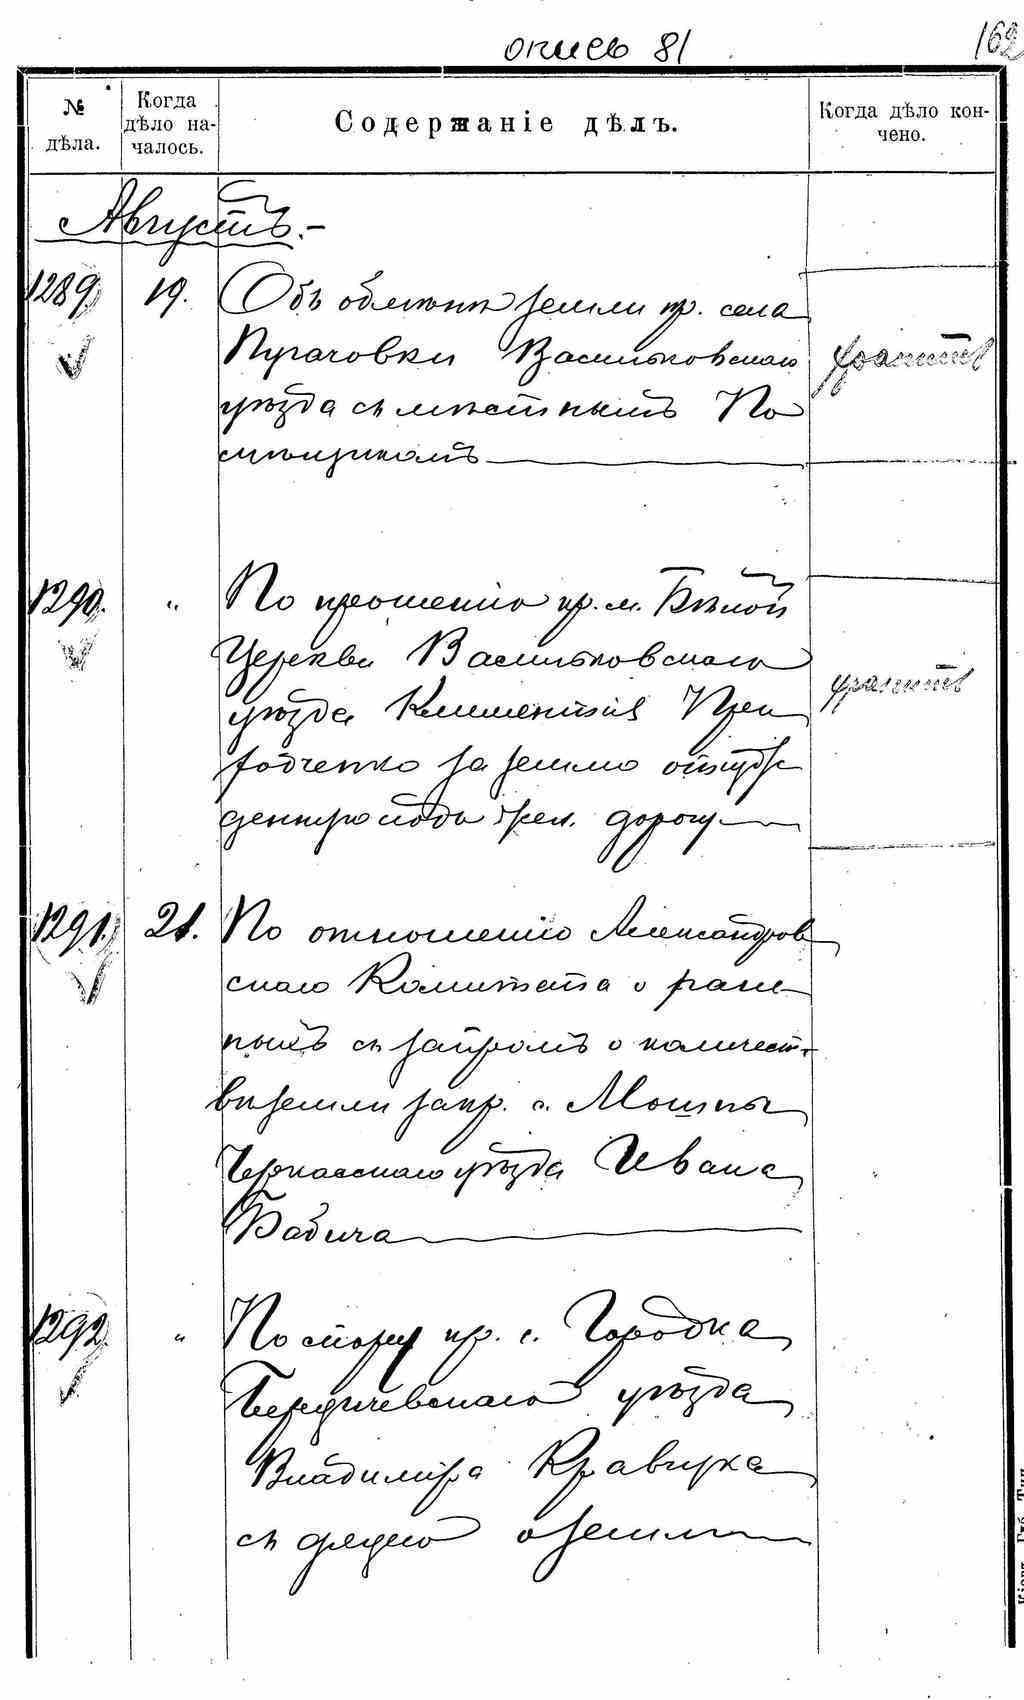 опись 81
162
№ дѣла.
Когда дѣло началось.
Содержаніе дѣлъ.
Когда дѣло кончено.
Августъ.-
1289. 19. Объ обмѣнѣ земли кр. села
Пугачовки Васильковскаго
уѣзда съ мѣстнымъ По
мѣщикомъ
1290. " По прошенію кр. м. Бѣлой
Церкви Васильковскаго
уѣзда Климентія
за землю отчуж
денную подъ жел. дорогу
1291. 21. По отношенію Александров
скаго Комитета о ране
ныхъ съ запросомъ о количест
вѣ земли за кр. с. Мошны
Черкасскаго уѣзда Ивана
Бабича
1292. " По спору кр. с. Городка
Бердичевскаго уѣзда
Владиміра Кравчука
съ дядею о землѣ